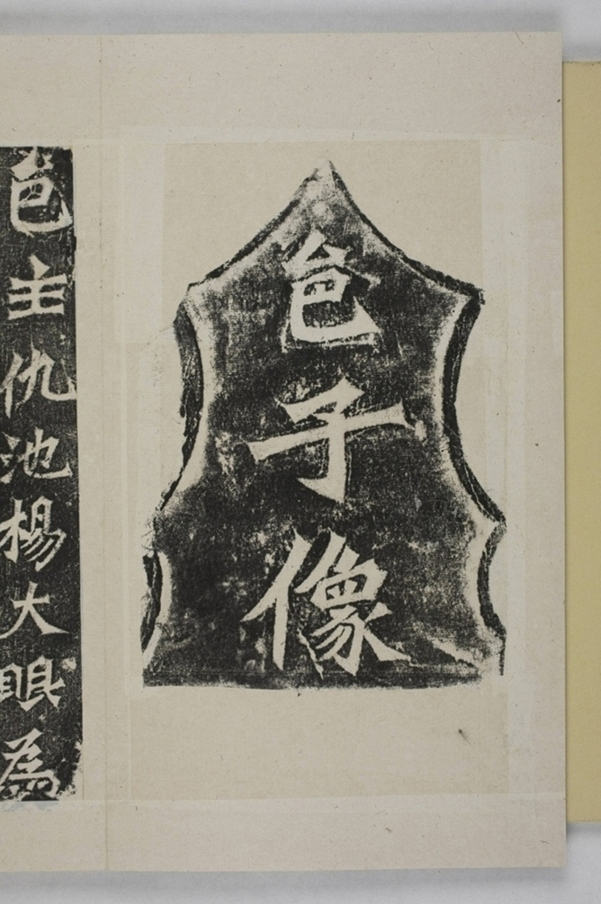 邑子像
邑主仇池楊大眼為